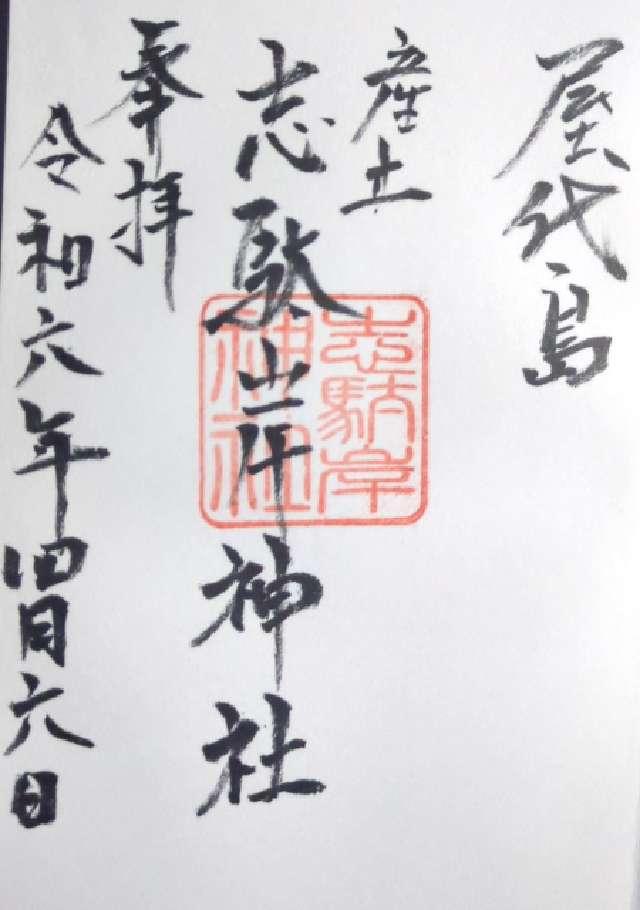 屋代島
産土
志駄岸神社
志駄岸
神社
奉拝
令和六年四月六日